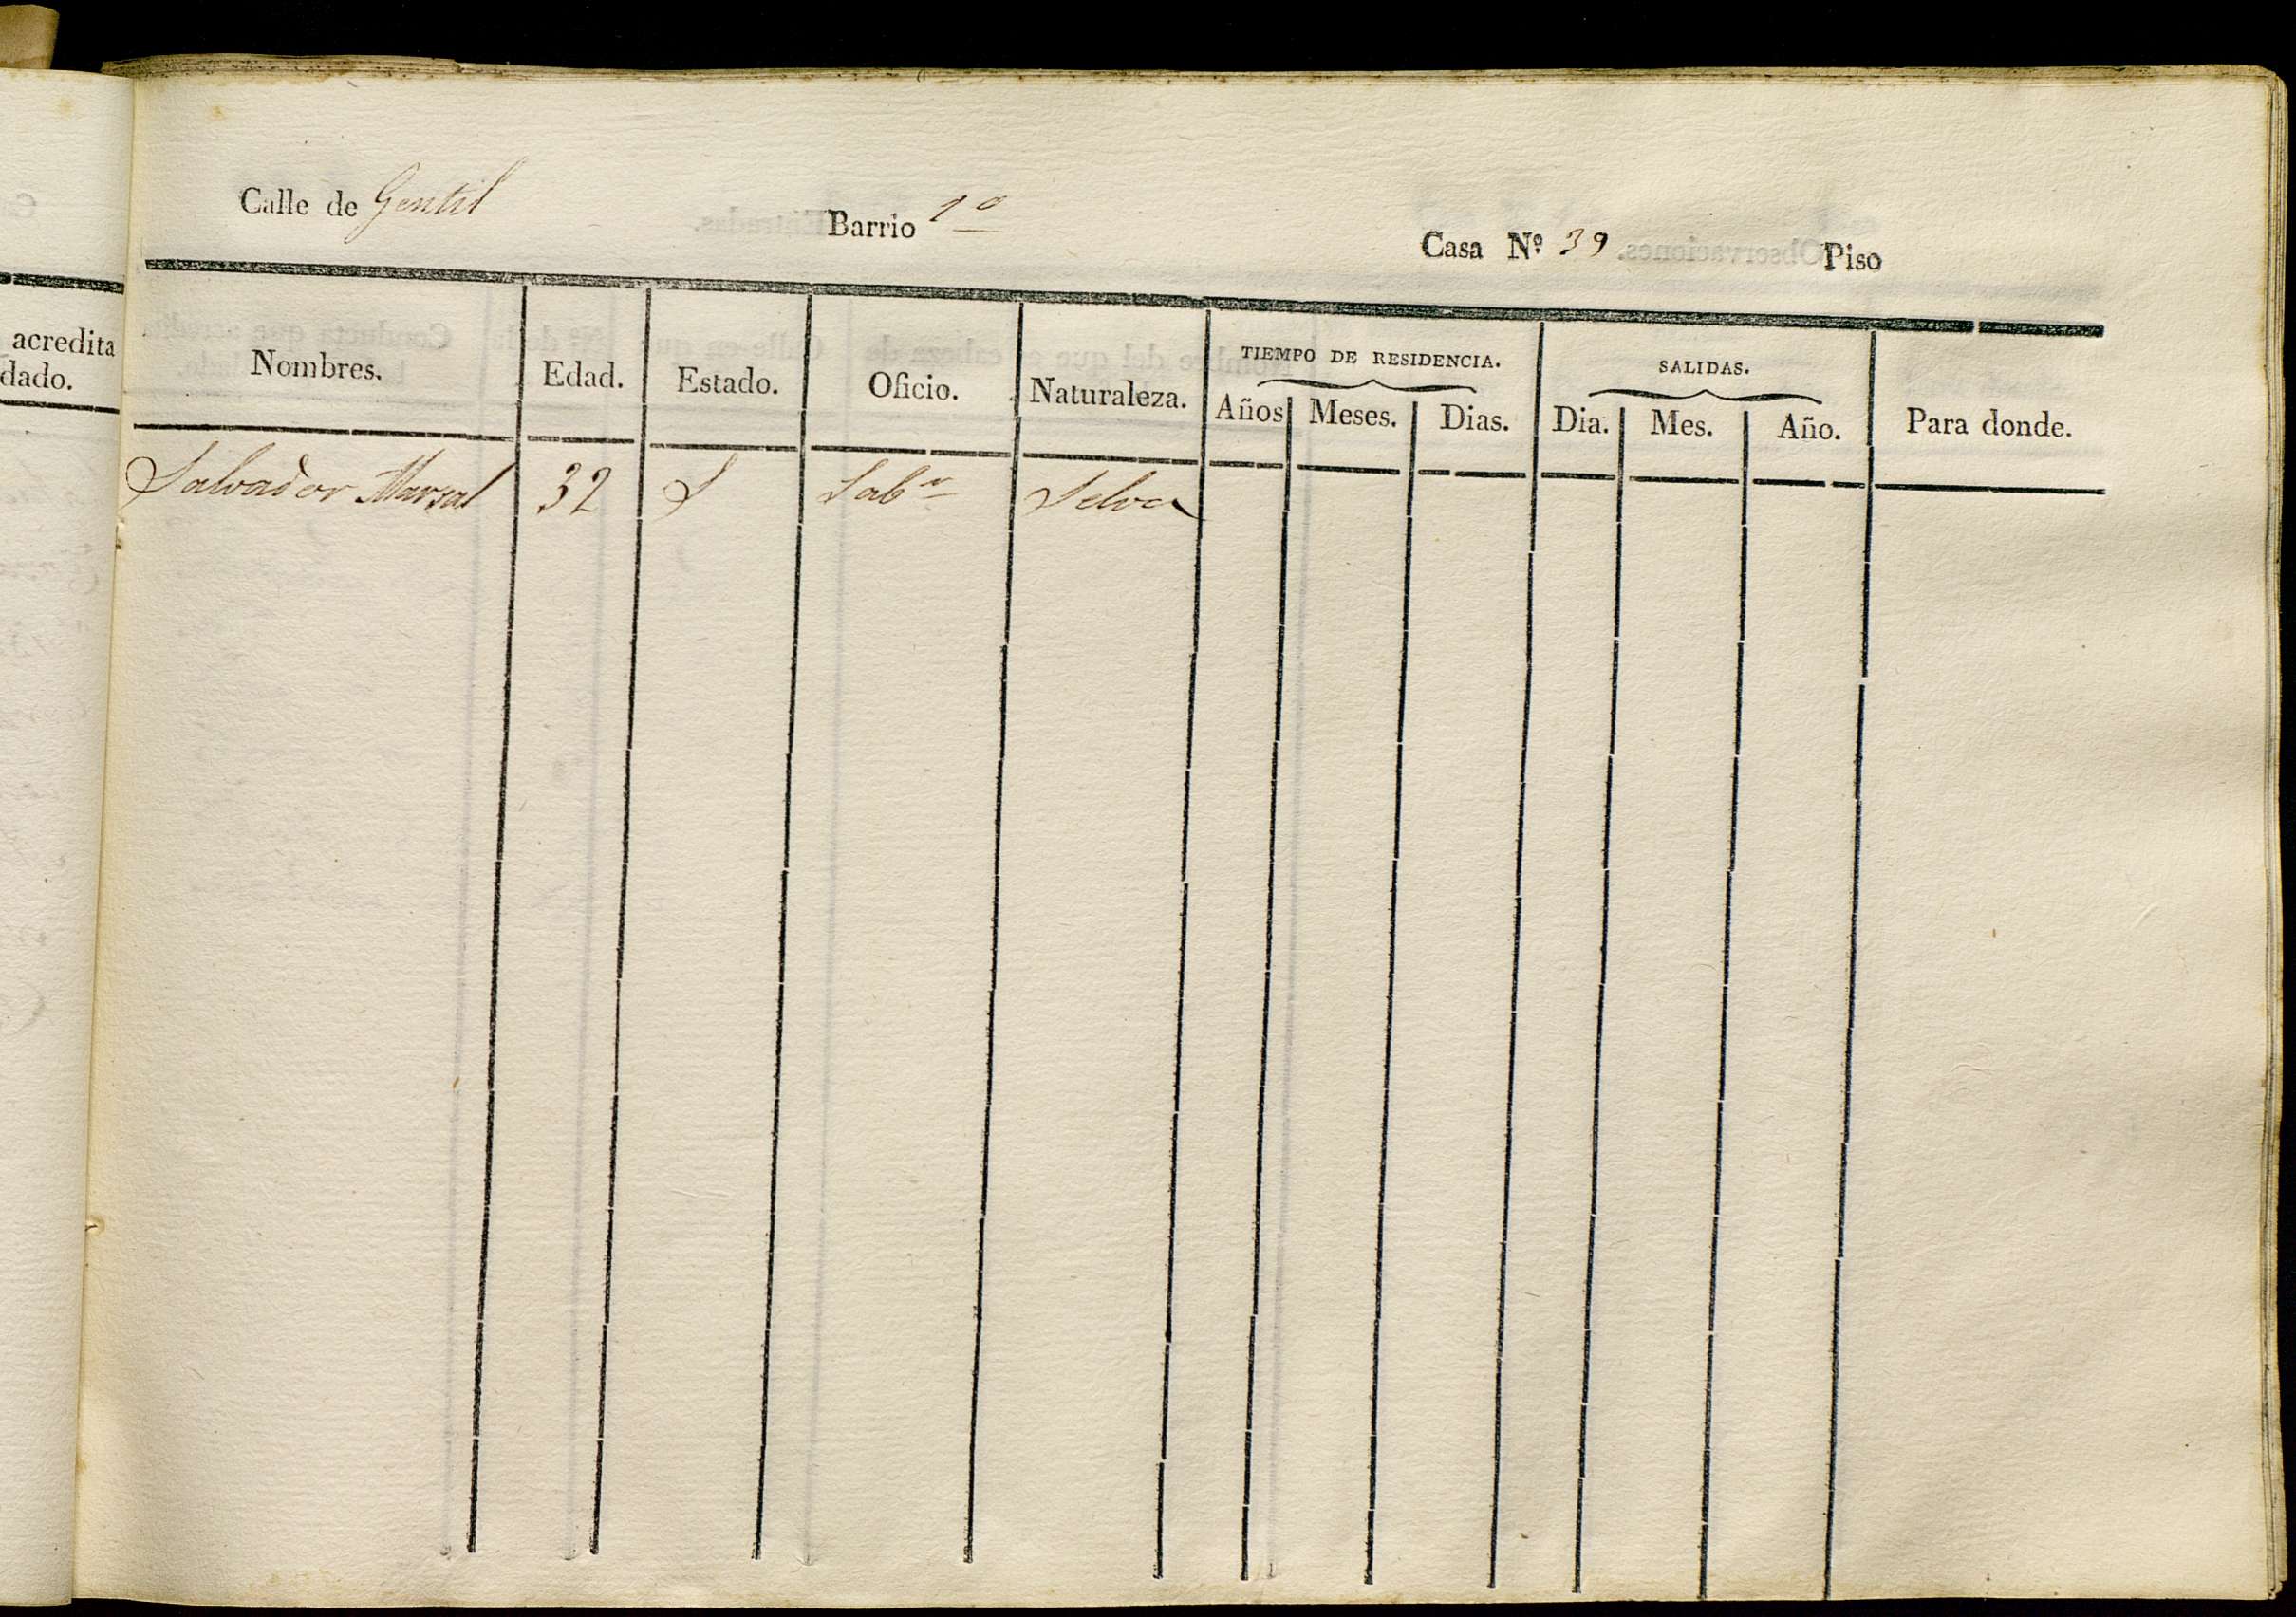 Calle de Gentil Barrio 1º Casa Nº 39 Piso
acredita
dado.
Nombres. Edad. Estado. Oficio. Naturaleza. TIEMPO DE RESIDENCIA. SALIDAS. Para donde.
Años Meses. Dias. Dia. Mes. Año.
Salvador Marsal 32 S Labr Selva